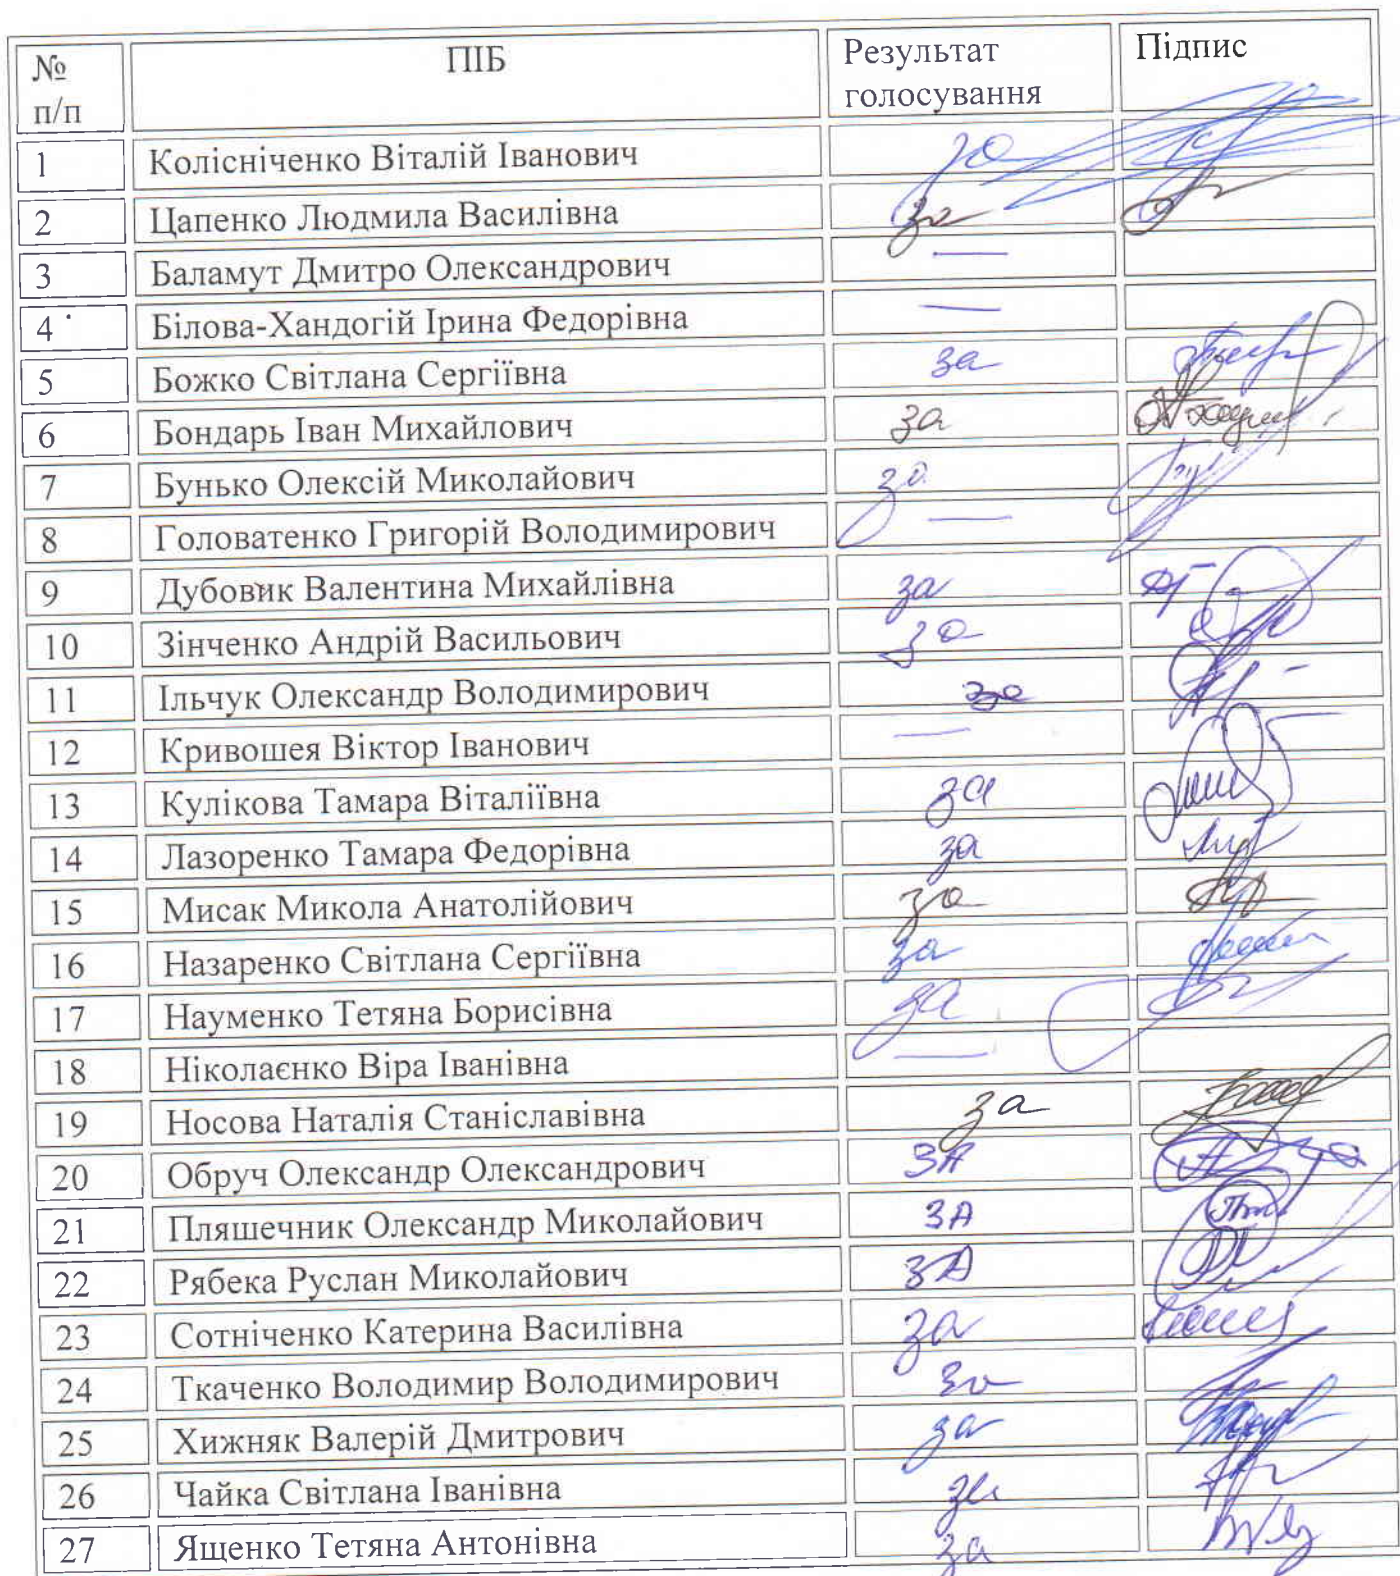 № п/п ПІБ Результат голосування Підпис
1 Колісніченко Віталій Іванович за
2 Цапенко Людмила Василівна за
3 Баламут Дмитро Олександрович —
4 Білова-Хандогій Ірина Федорівна —
5 Божко Світлана Сергіївна за
6 Бондарь Іван Михайлович за
7 Бунько Олексій Миколайович за
8 Головатенко Григорій Володимирович —
9 Дубовик Валентина Михайлівна за
10 Зінченко Андрій Васильович за
11 Ільчук Олександр Володимирович за
12 Кривошея Віктор Іванович —
13 Кулікова Тамара Віталіївна за
14 Лазоренко Тамара Федорівна за
15 Мисак Микола Анатолійович за
16 Назаренко Світлана Сергіївна за
17 Науменко Тетяна Борисівна за
18 Ніколаєнко Віра Іванівна —
19 Носова Наталія Станіславівна за
20 Обруч Олександр Олександрович ЗА
21 Пляшечник Олександр Миколайович ЗА
22 Рябека Руслан Миколайович ЗА
23 Сотніченко Катерина Василівна за
24 Ткаченко Володимир Володимирович за
25 Хижняк Валерій Дмитрович за
26 Чайка Світлана Іванівна за
27 Ященко Тетяна Антонівна за